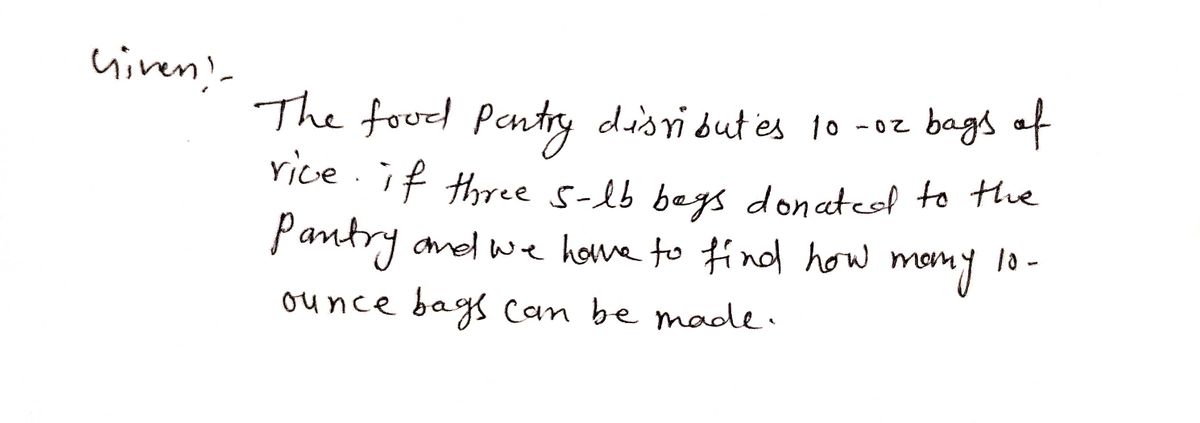 Given:-
The food pantry disributes 10-oz bags of
rice. if three 5-lb bags donated to the
Pantry and we have to find how many 10-
ounce bags can be made.